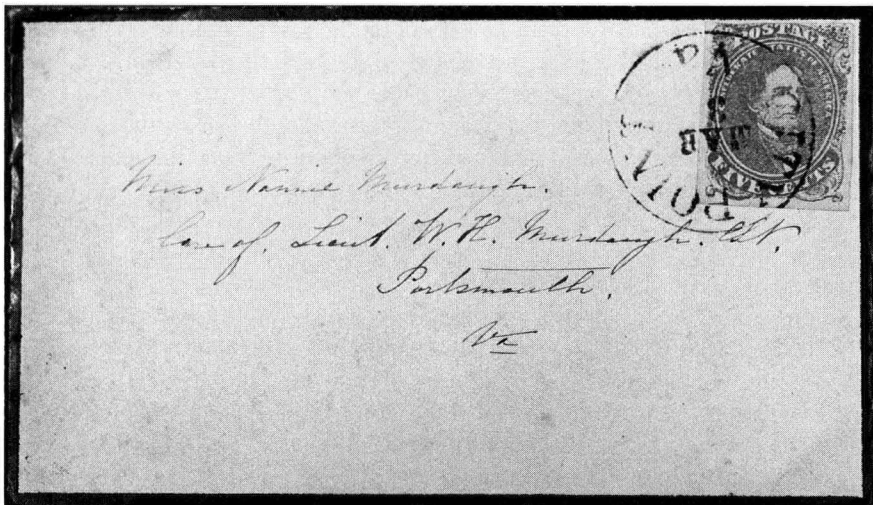 POSTAGE
FIVE CENTS
VA
8
MAR
POINT
Miss Nannie Murdaugh.
Care of. Lieut. W. H. Murdaugh. CSN.
Portsmouth.
Va